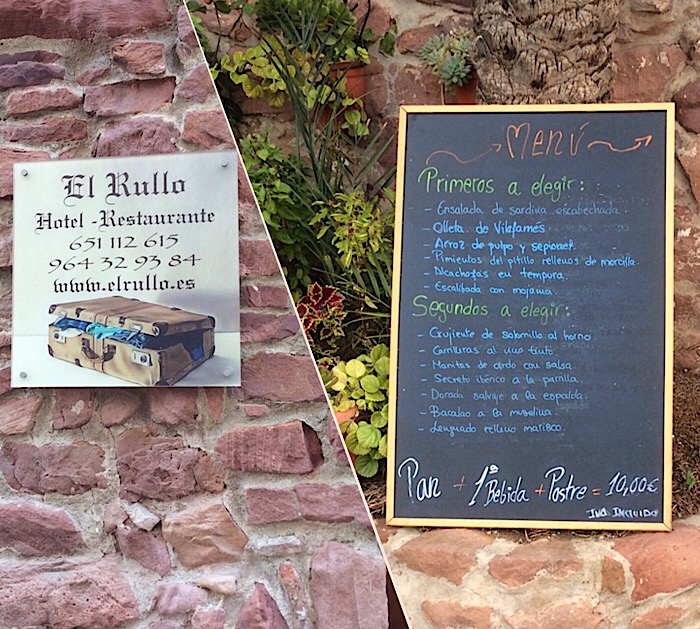 El Rullo
Hotel -Restaurante
651 112 615
964 32 93 84
www.elrullo.es
Menú
Primeros a elegir:
- Ensalada de sardina escabechada.
- Olleta de Vilafamés
- Arroz de pulpo y sepionet.
- Pimientos del pitillo rellenos de morcilla.
- Alcachofas en tempura.
- Escalibada con mojama.
Segundos a elegir:
- Crujiente de solomillo al horno
- Carrilleras al vino tinto.
- Manitas de cerdo con salsa.
- Secreto ibérico a la parrilla.
- Dorada salvaje a la espalda.
- Bacalao a la muselina.
- Lenguado relleno marisco.
Pan + 1ª Bebida + Postre = 10,00€
IVA INCLUIDO